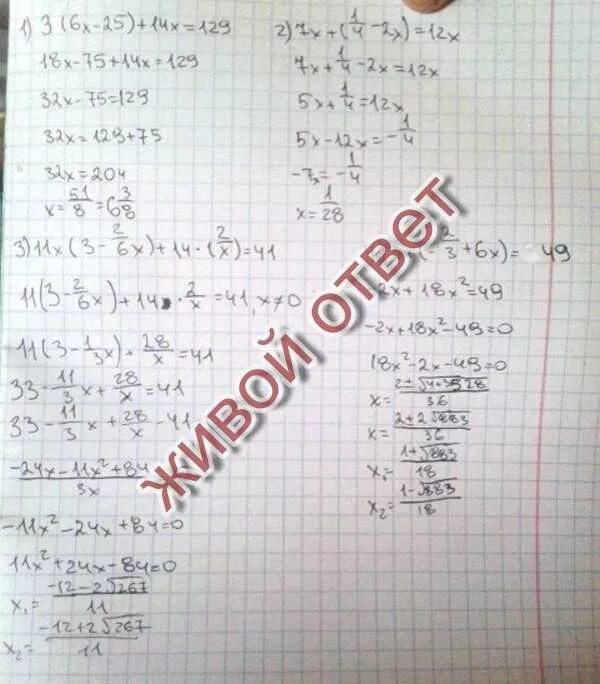 1) 3(6x-25)+14x=129
18x-75+14x=129
32x-75=129
32x=129+75
32x=204
x=51/8=6 3/8
2) 7x+(1/4-2x)=12x
7x+1/4-2x=12x
5x+1/4=12x
5x-12x=-1/4
-7x=-1/4
x=1/28
3) 11x(3-2/6x)+14·(2/x)=41
11(3-2/6x)+14·2/x=41, x≠0
11(3-1/3x)+28/x=41
33-11/3x+28/x=41
33-11/3x+28/x-41
-24x-11x²+84/3x
-11x²-24x+84=0
11x²+24x-84=0
x₁=-12-2√267/11
x₂=-12+2√267/11
(-2/3+6x)=49
2x+18x²=49
-2x+18x²-49=0
18x²-2x-49=0
x=2±√4+3528/36
x=2±2√883/36
x₁=1+√883/18
x₂=1-√883/18
ЖИВОЙ ОТВЕТ